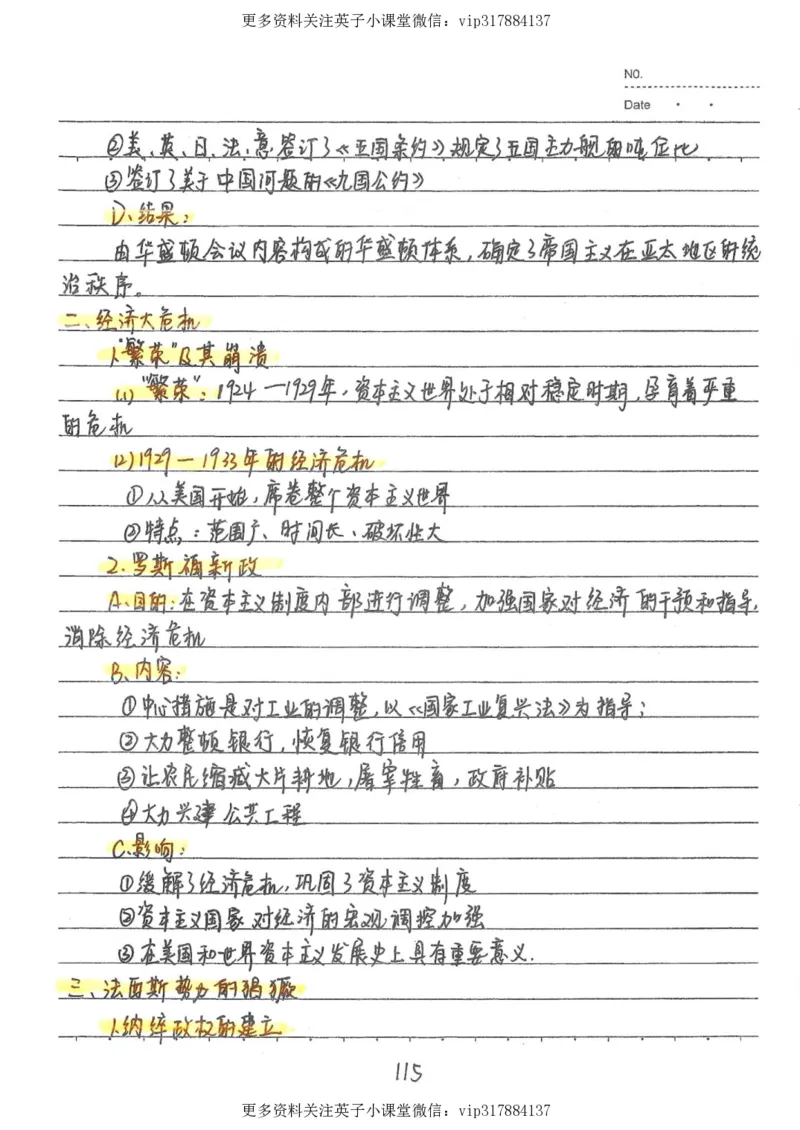 更多资料关注英子小课堂微信：vip317884137
NO.
Date
②美、英、日、法、意签订了《五国条约》规定了五国主力舰的吨位比
③签订了关于中国问题的《九国公约》
D、结果：
由华盛顿会议内容构成的华盛顿体系，确定了帝国主义在亚太地区的统
治秩序。
二、经济大危机
1."繁荣"及其崩溃
(1)"繁荣"：1924—1929年，资本主义世界处于相对稳定时期，孕育着严重
的危机
(2)1929—1933年的经济危机
①从美国开始，席卷整个资本主义世界
②特点：范围广、时间长、破坏性大
2.罗斯福新政
A.目的：在资本主义制度内部进行调整，加强国家对经济的干预和指导，
消除经济危机
B、内容：
①中心措施是对工业的调整，以《国家工业复兴法》为指导；
②大力整顿银行，恢复银行信用
③让农民缩减大片耕地，屠宰牲畜，政府补贴
④大力兴建公共工程
C.影响：
①缓解了经济危机，巩固了资本主义制度
②资本主义国家对经济的宏观调控加强
③在美国和世界资本主义发展史上具有重要意义.
三、法西斯势力的猖獗
1.纳粹政权的建立
115
更多资料关注英子小课堂微信：vip317884137